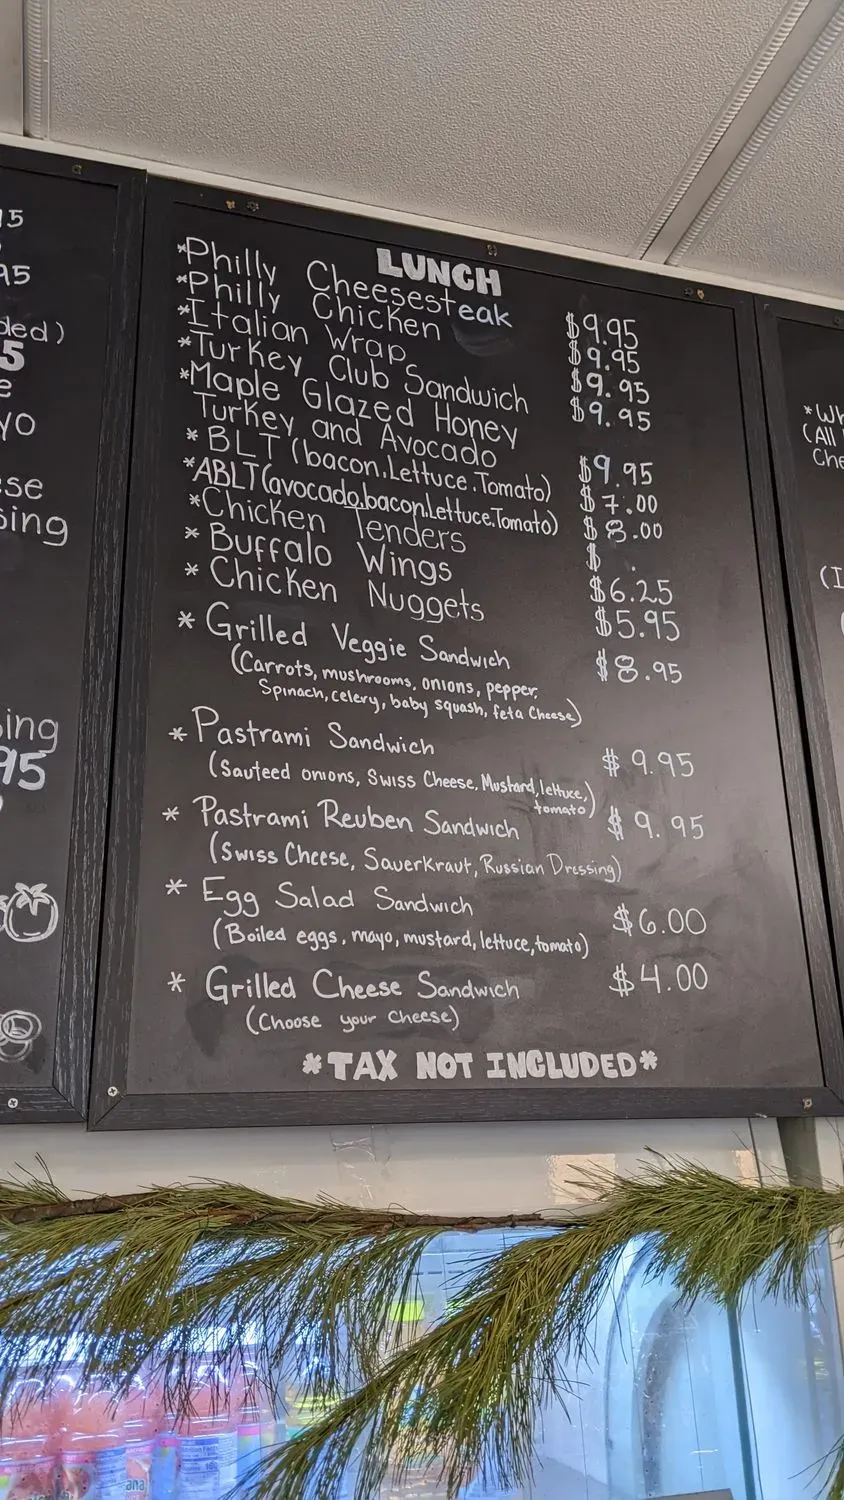 LUNCH
*Philly Cheesesteak $9.95
*Philly Chicken $9.95
*Italian Wrap $9.95
*Turkey Club Sandwich $9.95
*Maple Glazed Honey
Turkey and Avocado $9.95
*BLT (bacon.Lettuce.Tomato) $7.00
*ABLT(avocado.bacon.Lettuce.Tomato) $8.00
*Chicken Tenders $ .
*Buffalo Wings $6.25
*Chicken Nuggets $5.95
* Grilled Veggie Sandwich $8.95
(Carrots, mushrooms, onions, pepper,
Spinach, celery, baby squash, feta Cheese)
* Pastrami Sandwich $9.95
(Sauteed onions, Swiss Cheese, Mustard, lettuce,
tomato)
* Pastrami Reuben Sandwich $9.95
(Swiss Cheese, Sauerkraut, Russian Dressing)
* Egg Salad Sandwich $6.00
(Boiled eggs, mayo, mustard, lettuce, tomato)
* Grilled Cheese Sandwich $4.00
(Choose your cheese)
*TAX NOT INCLUDED*
15
95
ded)
5
e
yo
ese
sing
ing
95
*Wh
(All
Che
(I
(